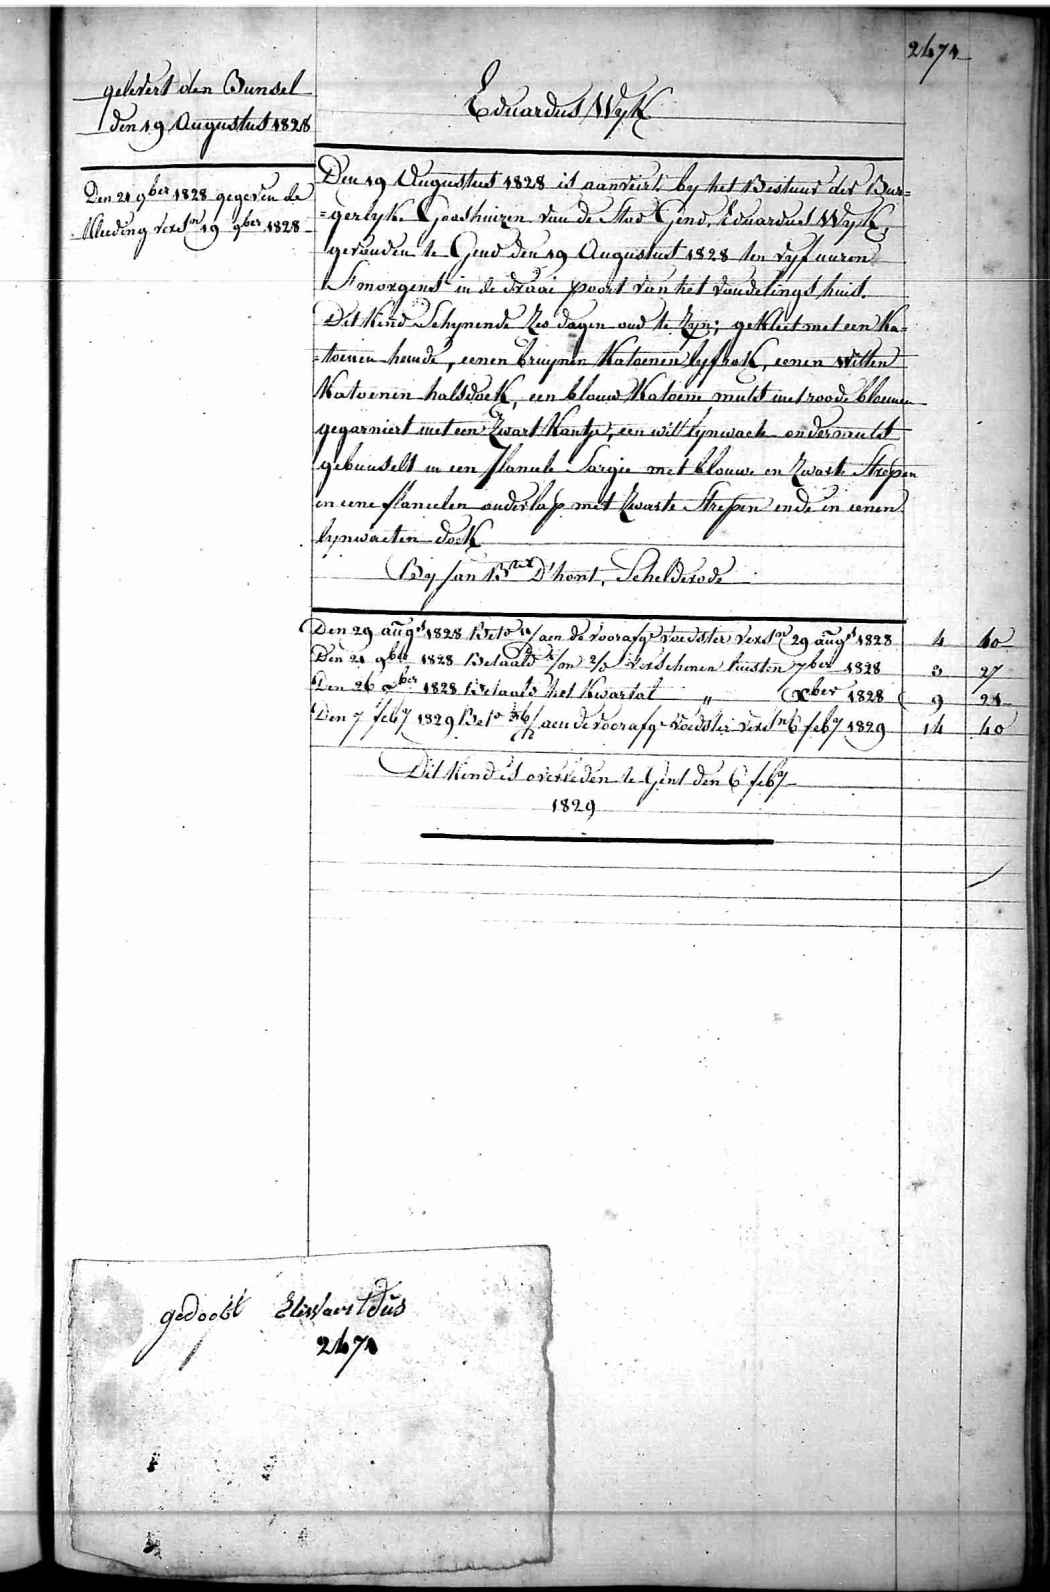 2474
gelevert den Bunsel
den 19 Augustus 1828
Eduardus Wyk
Den 21 9ber 1828 gegeven de
Kleeding versn 19 9ber 1828
Den 19 Augustus 1828 is aanveert by het Bestuur der Bur=
=gerlyke Godshuizen van de Stad Gend, Eduardus Wyk,
gevonden te Gend den 19 Augustus 1828 ten vyf uuren
S'morgens in de draai poort van het vondelings huis.
Dit Kind Schynende zes dagen oud te zyn; gekleet met een Ka=
=toenen hemde, eenen bruynen Katoenen lyfrok, eenen witten
Katoenen halsdoek, een blouw Katoene muts met roode bloemen
gegarniert met een Zwart Kantje, een wit lynwaete ondermuts
gebunselt in een flanele Sargie met blouwe en Zwarte Strepen
en eene flanelen onderlap met Zwarte Strepen ende in eenen
lynwaeten doek
By Jan Bte D'hont, Schelderode
Den 29 augs 1828 Beto aen de voorafge voedster versn 29 augs 1828 4 40
Den 21 9ber 1828 Betaald verschenen 7ber 1828 3 27
Den 26 xber 1828 Betaald het Kwartal " xber 1828 9 21
Den 7 feby 1829 Beto aen de voorafge voedster versn 6 feby 1829 14 40
Dit Kind is overleden te Gent den 6 feby
1829
gedoobt
2474